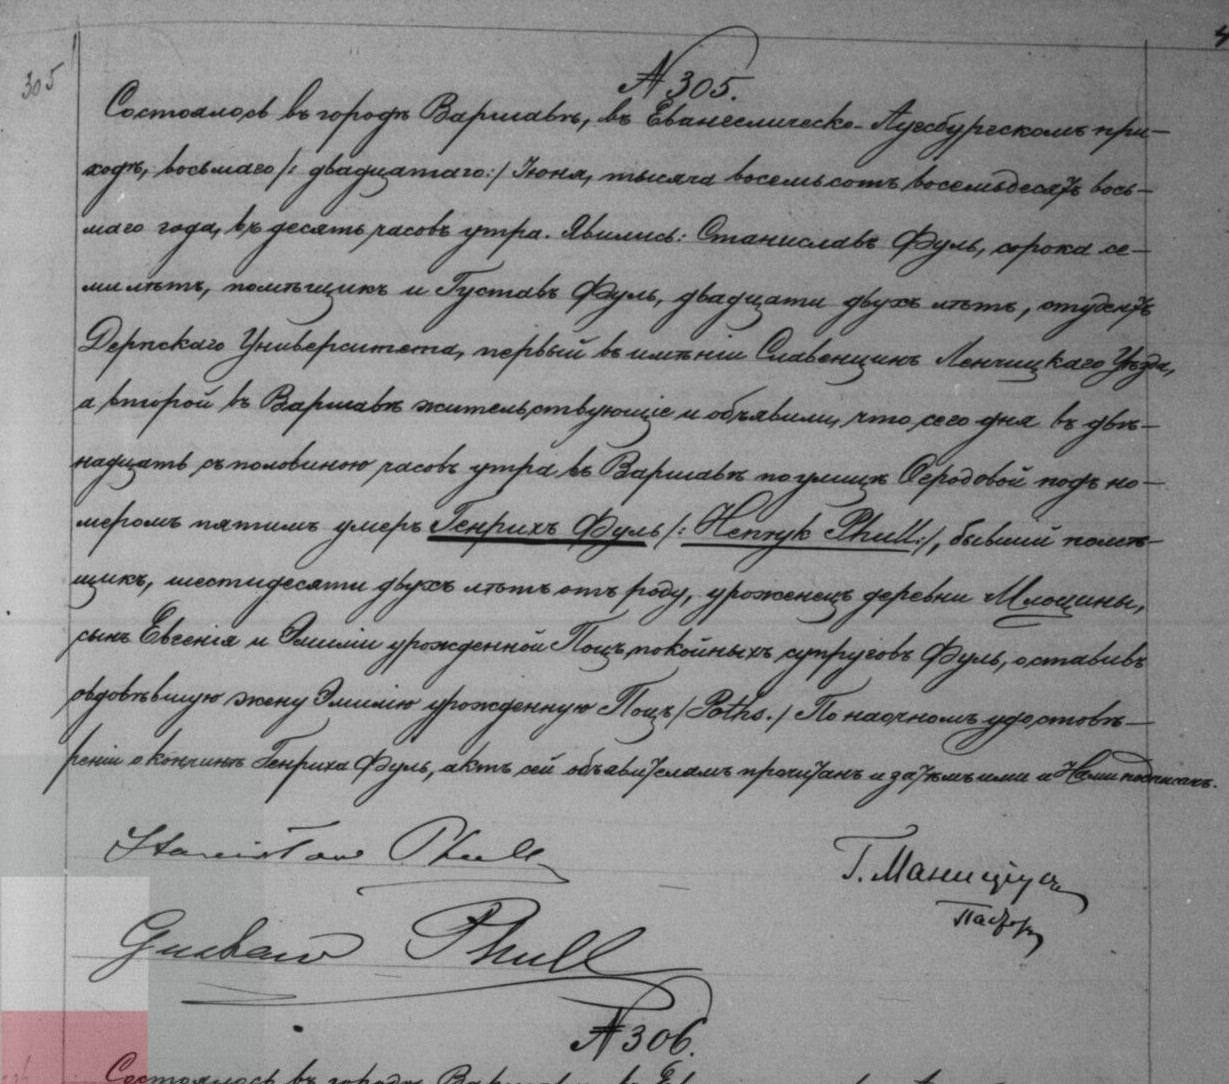 305
№ 305.
Состоялось въ городѣ Варшавѣ, въ Евангелическо-Аугсбургскомъ при-
ходѣ, восьмаго /: двадцатаго :/ Іюня, тысяча восемьсотъ восемьдесятъ вось-
маго года, въ десять часовъ утра. Явились: Станиславъ Фуль, сорока се-
ми лѣтъ, помѣщикъ и Густавъ Фуль, двадцати двухъ лѣтъ, студентъ
Дерпскаго Университета, первый въ имѣніи Славенцинъ Ленчицкаго Уѣзда,
а второй въ Варшавѣ жительствующіе и объявили, что сего дня въ двѣ-
надцать съ половиною часовъ утра въ Варшавѣ по улицѣ Огродовой подъ но-
меромъ пятымъ умеръ Генрихъ Фуль /: Henryk Phull :/, бывшій помѣ-
щикъ, шестидесяти двухъ лѣтъ отъ роду, уроженецъ деревни Млоцины,
сынъ Евгенія и Эмиліи урожденной Поцъ, покойныхъ супруговъ Фуль, оставивъ
овдовѣвшую жену Эмилію урожденную Поцъ /Poths./ По наочномъ удостовѣ-
реніи о кончинѣ Генриха Фуль, актъ сей объявителямъ прочитанъ и затѣмъ ими и Нами подписанъ.
Stanisław Phull
Г. Маниціусъ
Пасторъ
Gustaw Phull
№ 306.
Состоялось въ городѣ Варшавѣ, въ